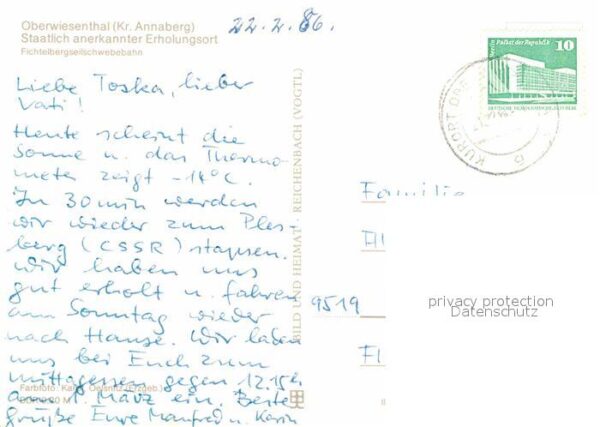 Oberwiesenthal (Kr. Annaberg)
Staatlich anerkannter Erholungsort
Fichtelbergseilschwebebahn
22.2.86.
Liebe Toska, lieber
Vati!
Heute scheint die
Sonne u. das Thermo
meter zeigt -14°C.
In 30 min werden
wir wieder zum Ples-
berg (CSSR) stapfen.
Wir haben uns
gut erholt u. fahren
am Sonntag wieder
nach Hause. Wir laden
uns bei Euch zum
Mittagessen gegen 12.15h
am 1. März ein. Beste
Grüße Eure Manfred u. Karin
Farbfoto: Oelsnitz (Erzgeb.)
M
BILD UND HEIMAT · REICHENBACH (VOGTL)
Berlin Palast der Republik 10
DEUTSCHE DEMOKRATISCHE REPUBLIK
KURORT
Familie
9519
privacy protection
Datenschutz